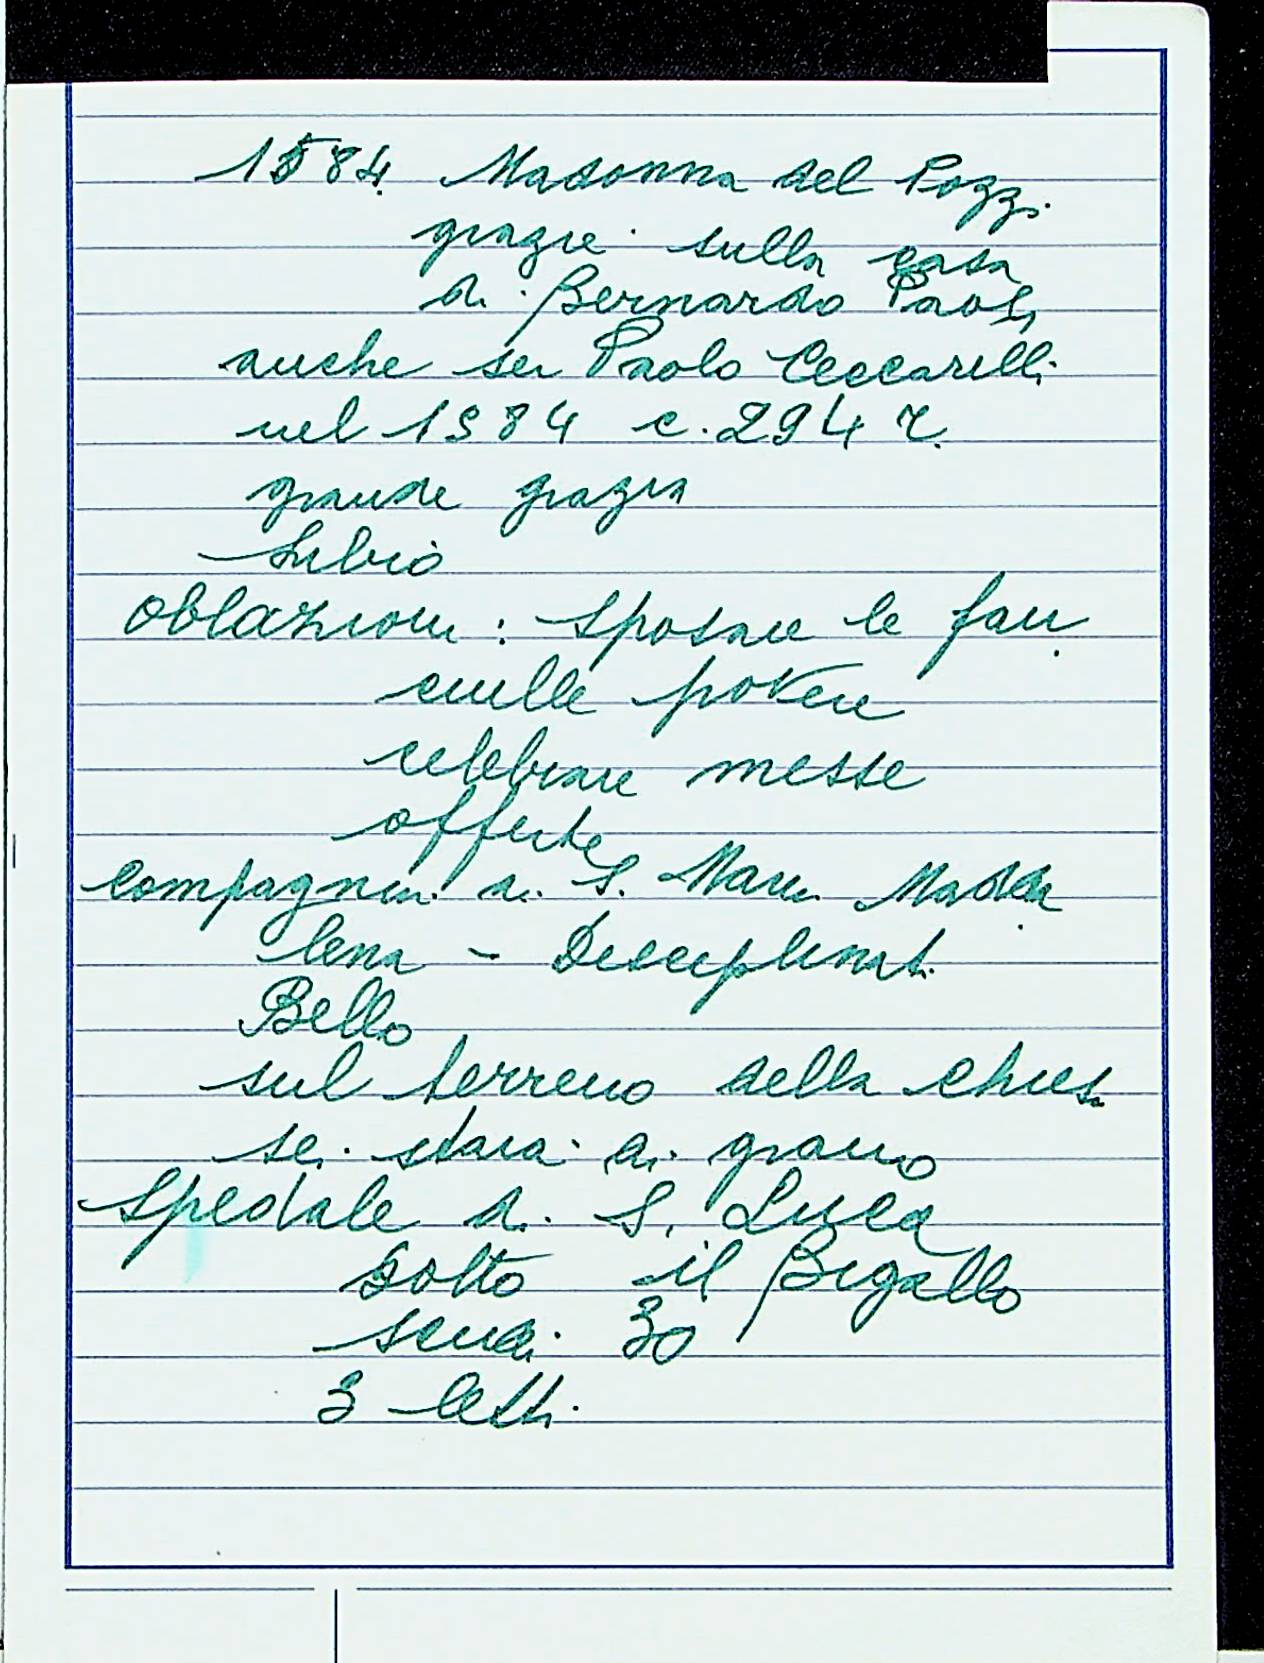 1584 Madonna del Pozzi
grazie sulla casa
di Bernardo Paoli
anche ser Paolo Ceccarelli
nel 1584 c. 294 r.
grande grazia
subiò
oblazioni: sposare le fan
ciulle povere
celebrare messe
offerte
compagnia di S. Maria Madda
lena - Disciplinati
Bello
sul terreno della chiesa
sei staia di grano
Spedale di S. Luca
sotto il Bigallo
scudi 30
3 letti